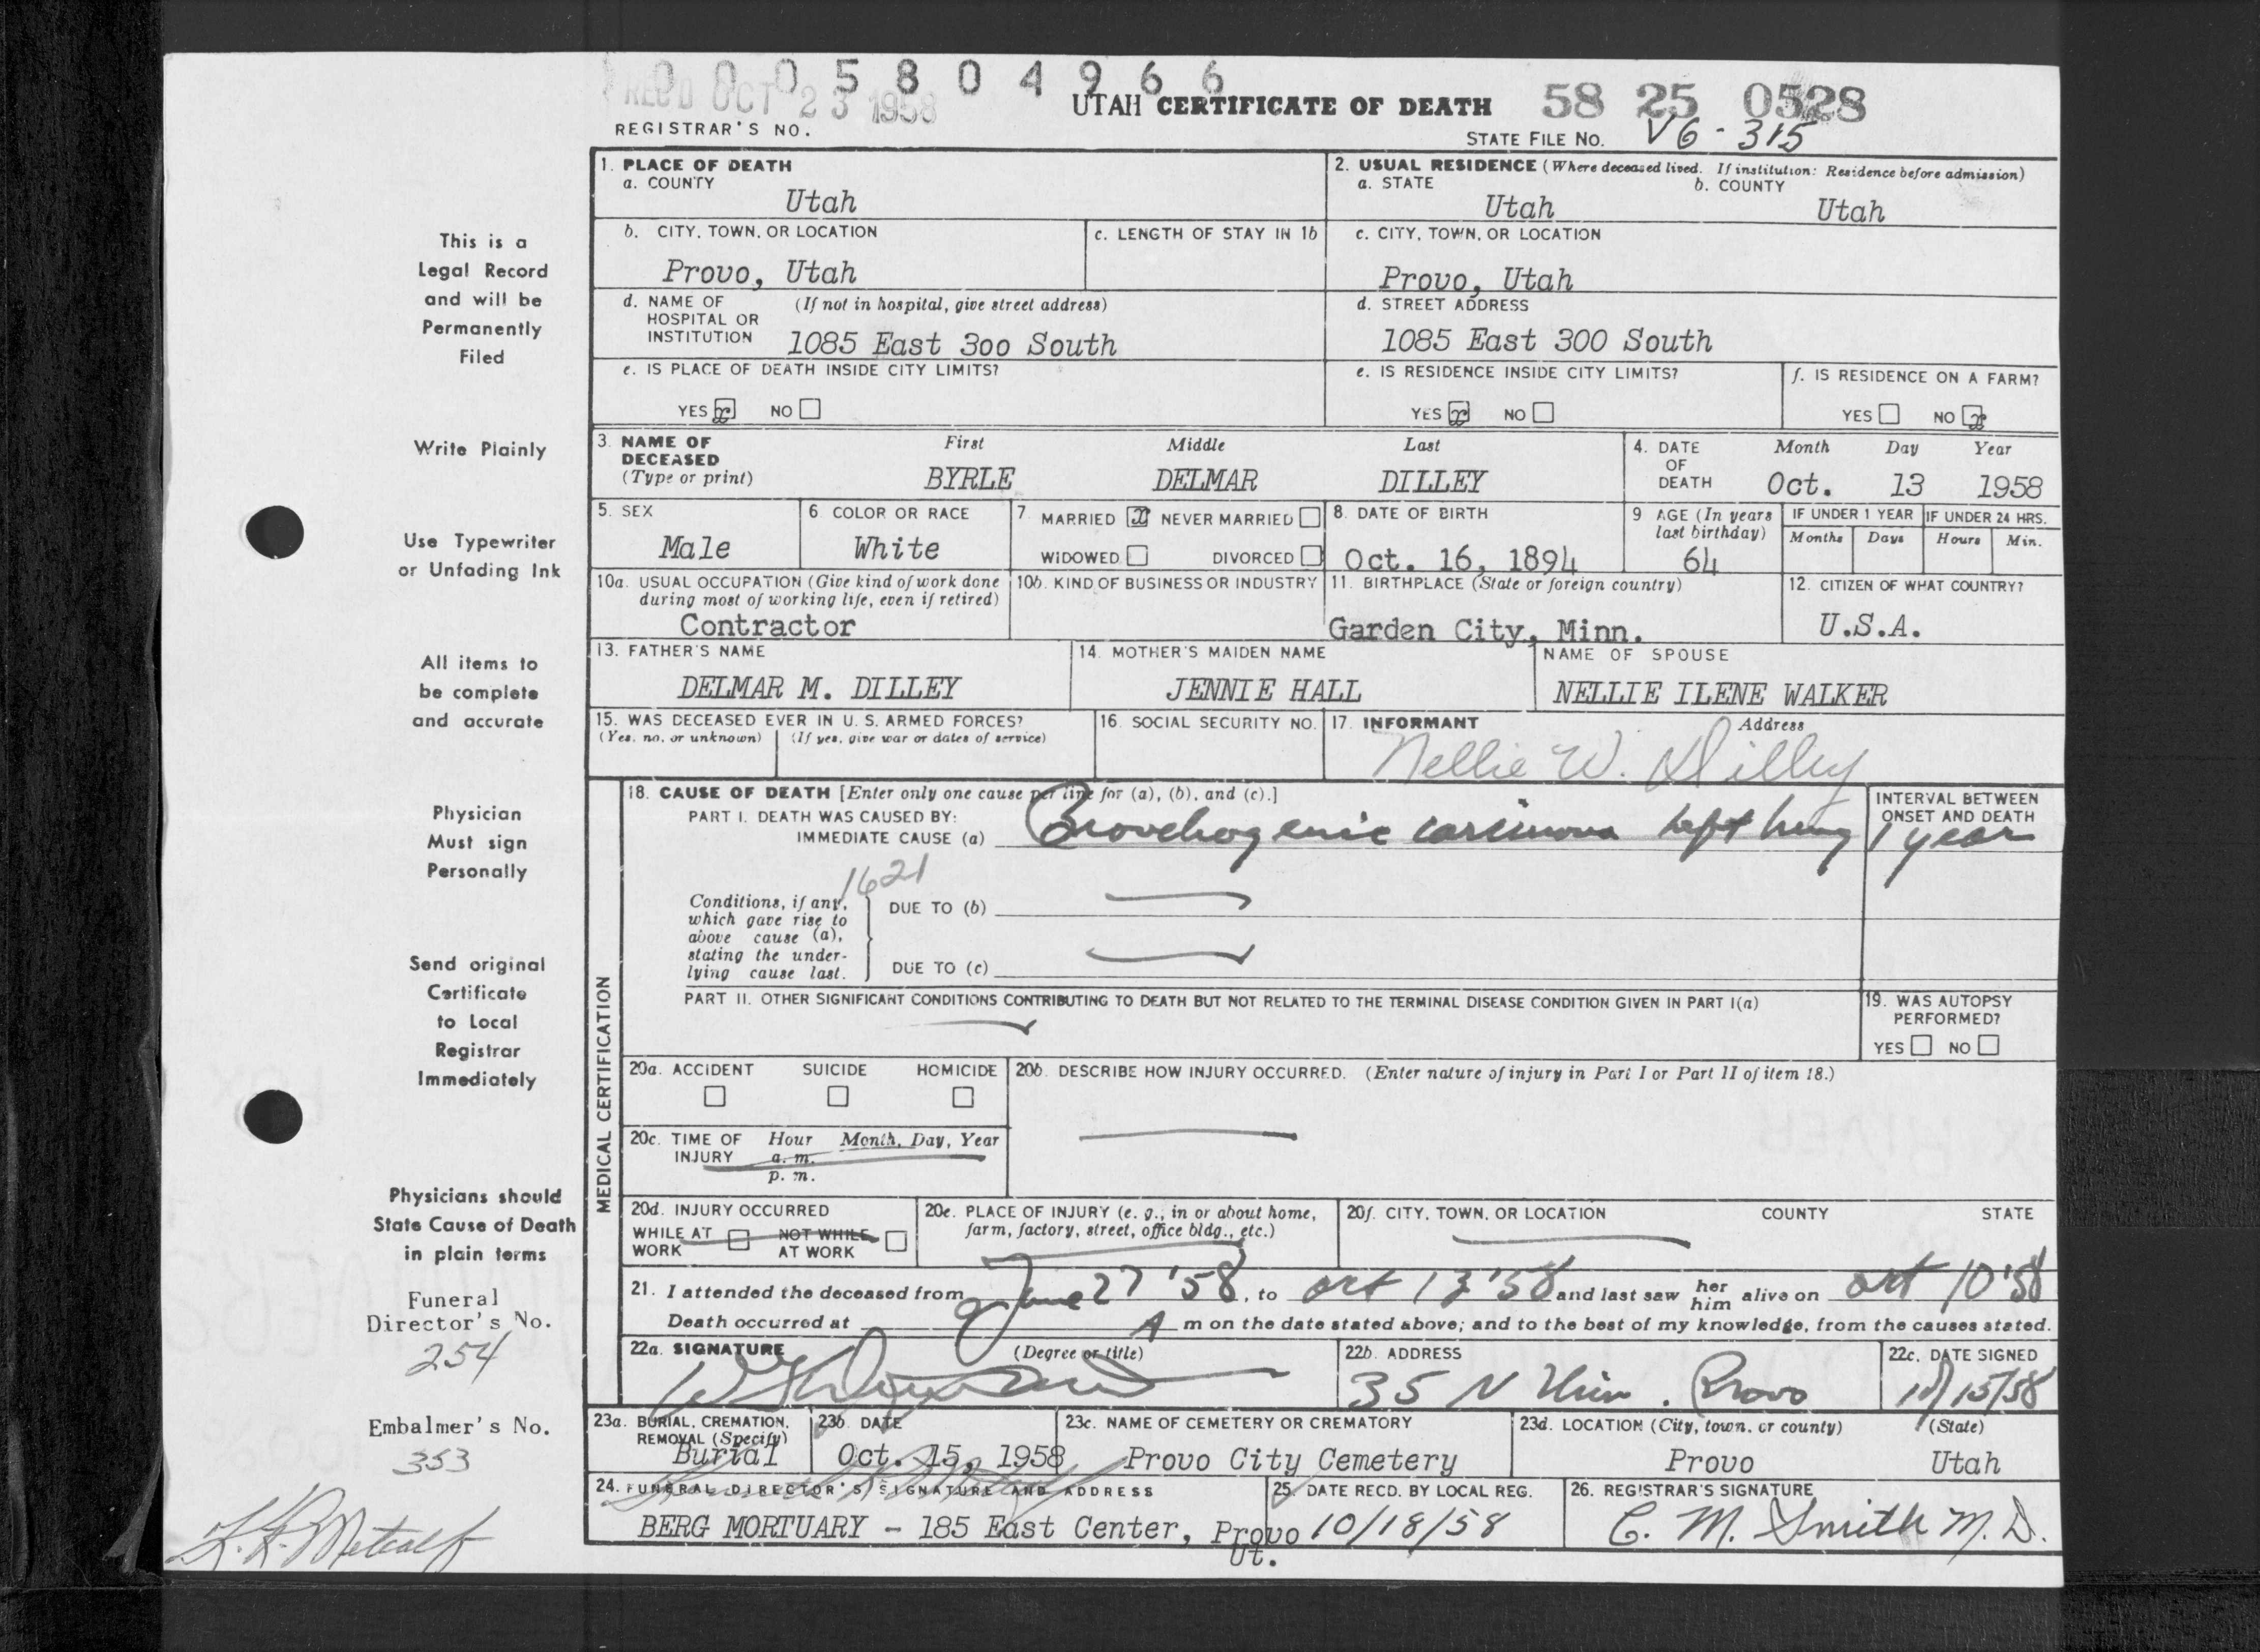 0 0 0 5 8 0 4 9 6 6
REC'D OCT 23 1958
UTAH CERTIFICATE OF DEATH 58 25 0528
REGISTRAR'S NO.
STATE FILE NO. V6-315
1. PLACE OF DEATH
a. COUNTY
Utah
2. USUAL RESIDENCE (Where deceased lived. If institution: Residence before admission)
a. STATE b. COUNTY
Utah Utah
b. CITY, TOWN, OR LOCATION
Provo, Utah
c. LENGTH OF STAY IN 1b
c. CITY, TOWN, OR LOCATION
Provo, Utah
d. NAME OF (If not in hospital, give street address)
HOSPITAL OR
INSTITUTION 1085 East 3oo South
d. STREET ADDRESS
1085 East 300 South
e. IS PLACE OF DEATH INSIDE CITY LIMITS?
YES x NO
e. IS RESIDENCE INSIDE CITY LIMITS?
YES x NO
f. IS RESIDENCE ON A FARM?
YES NO x
3. NAME OF DECEASED
(Type or print)
First Middle Last
BYRLE DELMAR DILLEY
4. DATE OF DEATH
Month Day Year
Oct. 13 1958
5. SEX
Male
6. COLOR OR RACE
White
7. MARRIED x NEVER MARRIED
WIDOWED DIVORCED
8. DATE OF BIRTH
Oct. 16, 1894
9. AGE (In years
last birthday)
64
IF UNDER 1 YEAR IF UNDER 24 HRS.
Months Days Hours Min.
10a. USUAL OCCUPATION (Give kind of work done
during most of working life, even if retired)
Contractor
10b. KIND OF BUSINESS OR INDUSTRY
11. BIRTHPLACE (State or foreign country)
Garden City, Minn.
12. CITIZEN OF WHAT COUNTRY?
U.S.A.
13. FATHER'S NAME
DELMAR M. DILLEY
14. MOTHER'S MAIDEN NAME
JENNIE HALL
NAME OF SPOUSE
NELLIE ILENE WALKER
15. WAS DECEASED EVER IN U. S. ARMED FORCES?
(Yes, no, or unknown) (If yes, give war or dates of service)
16. SOCIAL SECURITY NO.
17. INFORMANT Address
Nellie W. Dilley
MEDICAL CERTIFICATION
18. CAUSE OF DEATH [Enter only one cause per line for (a), (b), and (c).]
PART I. DEATH WAS CAUSED BY:
IMMEDIATE CAUSE (a) Bronchogenic carcinoma left lung
INTERVAL BETWEEN
ONSET AND DEATH
1 year
1621
Conditions, if any,
which gave rise to
above cause (a),
stating the under-
lying cause last.
DUE TO (b)
DUE TO (c)
PART II. OTHER SIGNIFICANT CONDITIONS CONTRIBUTING TO DEATH BUT NOT RELATED TO THE TERMINAL DISEASE CONDITION GIVEN IN PART I(a)
19. WAS AUTOPSY
PERFORMED?
YES NO
20a. ACCIDENT SUICIDE HOMICIDE
20b. DESCRIBE HOW INJURY OCCURRED. (Enter nature of injury in Part I or Part II of item 18.)
20c. TIME OF INJURY Hour Month, Day, Year
a. m.
p. m.
20d. INJURY OCCURRED
WHILE AT WORK NOT WHILE AT WORK
20e. PLACE OF INJURY (e. g., in or about home,
farm, factory, street, office bldg., etc.)
20f. CITY, TOWN, OR LOCATION COUNTY STATE
21. I attended the deceased from June 27 '58, to Oct 13 '58 and last saw her him alive on Oct 10 '58
Death occurred at A m on the date stated above; and to the best of my knowledge, from the causes stated.
22a. SIGNATURE (Degree or title)
22b. ADDRESS
35 N Univ. Provo
22c. DATE SIGNED
10/15/58
23a. BURIAL, CREMATION,
REMOVAL (Specify)
Burial
23b. DATE
Oct. 15, 1958
23c. NAME OF CEMETERY OR CREMATORY
Provo City Cemetery
23d. LOCATION (City, town, or county) (State)
Provo Utah
24. FUNERAL DIRECTOR'S SIGNATURE AND ADDRESS
BERG MORTUARY - 185 East Center, Provo
Ut.
25. DATE RECD. BY LOCAL REG.
10/18/58
26. REGISTRAR'S SIGNATURE
C. M. Smith M. D.
This is a
Legal Record
and will be
Permanently
Filed
Write Plainly
Use Typewriter
or Unfading Ink
All items to
be complete
and accurate
Physician
Must sign
Personally
Send original
Certificate
to Local
Registrar
Immediately
Physicians should
State Cause of Death
in plain terms
Funeral
Director's No.
254
Embalmer's No.
353
Metcalf